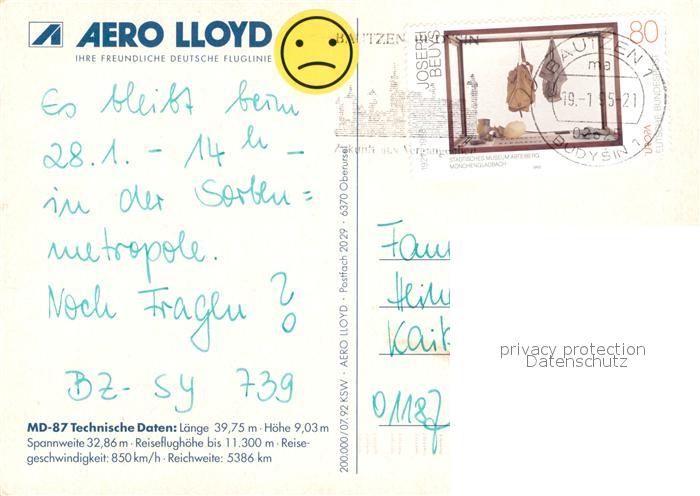 AERO LLOYD
IHRE FREUNDLICHE DEUTSCHE FLUGLINIE
Es bleibt beim
28.1. - 14 h -
in der Sorben=
metropole.
Noch Fragen ?
BZ- SY 739
MD-87 Technische Daten: Länge 39,75 m · Höhe 9,03 m
Spannweite 32,86 m · Reiseflughöhe bis 11.300 m · Reise-
geschwindigkeit: 850 km/h · Reichweite: 5386 km
200.000/07.92 KSW · AERO LLOYD · Postfach 2029 · 6370 Oberursel
BAUTZEN BUDYSIN
JOSEPH
BEUYS
80
EUROPA
DEUTSCHE BUNDESPOST
STÄDTISCHES MUSEUM ABTEIBERG
MÖNCHENGLADBACH
BAUTZEN 1
ma
19.-1.95-21
BUDYSIN 1
Fam
Hein
Kait
0118
privacy protection
Datenschutz